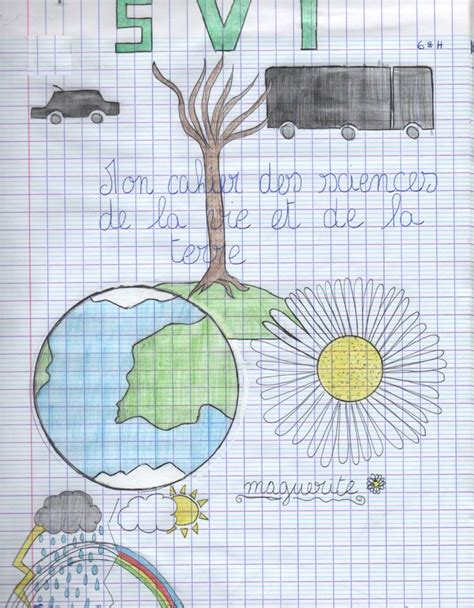 SVT
6è H
Mon cahier des sciences
de la vie et de la
terre
maguerite